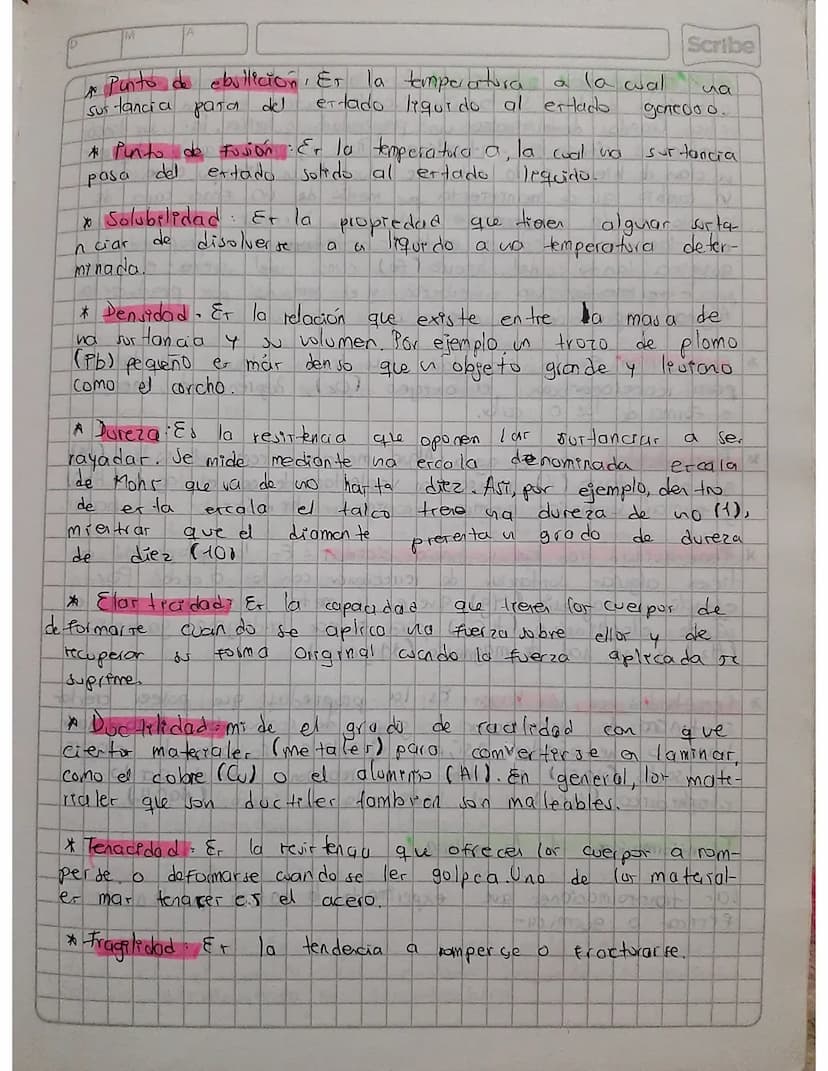 D
M
A
Scribe
* Punto de ebullición. Es la temperatura a la cual una
sustancia pasa del estado liquido al estado gaseoso.
* Punto de fusión: Es la temperatura a, la cual una sustancia
pasa del estado solido al estado liquido.
* Solubilidad: Es la propiedad que tienen algunas susta-
ncias de disolverse a un liquido a una temperatura deter-
minada.
* Densidad. Es la relación que existe entre la masa de
una sustancia y su volumen. Por ejemplo un trozo de plomo
(Pb) pequeño es más denso que un objeto grande y liviano
como el corcho.
* Dureza: Es la resistencia que oponen las sustancias a ser
rayadas. Se mide mediante una escala denominada escala
de Mohs que va de uno hasta diez. Así, por ejemplo, dentro
de esta escala el talco tiene una dureza de uno (1),
mientras que el diamante presenta un grado de dureza
de diez (10)
* Elasticidad: Es la capacidad que tienen los cuerpos de
deformarse cuando se aplica una fuerza sobre ellos y de
recuperar su forma original cuando la fuerza aplicada se
suprime.
* Ductilidad: mide el grado de facilidad con que
ciertos materiales (metales) para comverterse en laminas,
como el cobre (Cu) o el aluminio (Al). En general, los mate-
riales que son ductiles tambien son maleables.
* Tenacidad: Es la resistencia que ofrecen los cuerpos a rom-
perse o deformarse cuando se les golpea. Uno de los material-
es mas tenaces es el acero.
* Fragilidad: Es la tendencia a romperse o fracturarse.